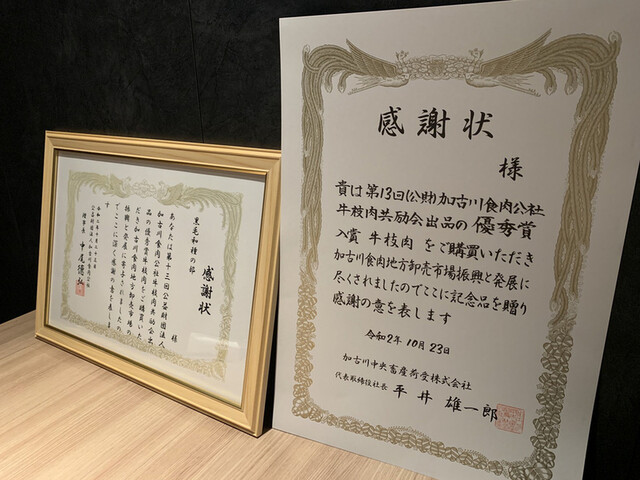 感謝状
様
貴は第13回(公財)加古川食肉公社
牛枝肉共励会出品の優秀賞
入賞 牛枝肉 をご購買いただき
加古川食肉地方卸売市場振興と発展に
尽くされましたのでここに記念品を贈り
感謝の意を表します
令和2年 10月23日
加古川中央畜産荷受株式会社
代表取締役社長 平井雄一郎
感謝状
黒毛和種の部
様
あなたは第十三回公益財団法人
加古川食肉公社牛枝肉共励会出
品の優秀賞牛枝肉をご購買いた
だき加古川食肉地方卸売市場の
振興と発展に寄与されましたの
でここに深く感謝の意を表しま
す
公益財団法人加古川食肉公社
理事長 中尾